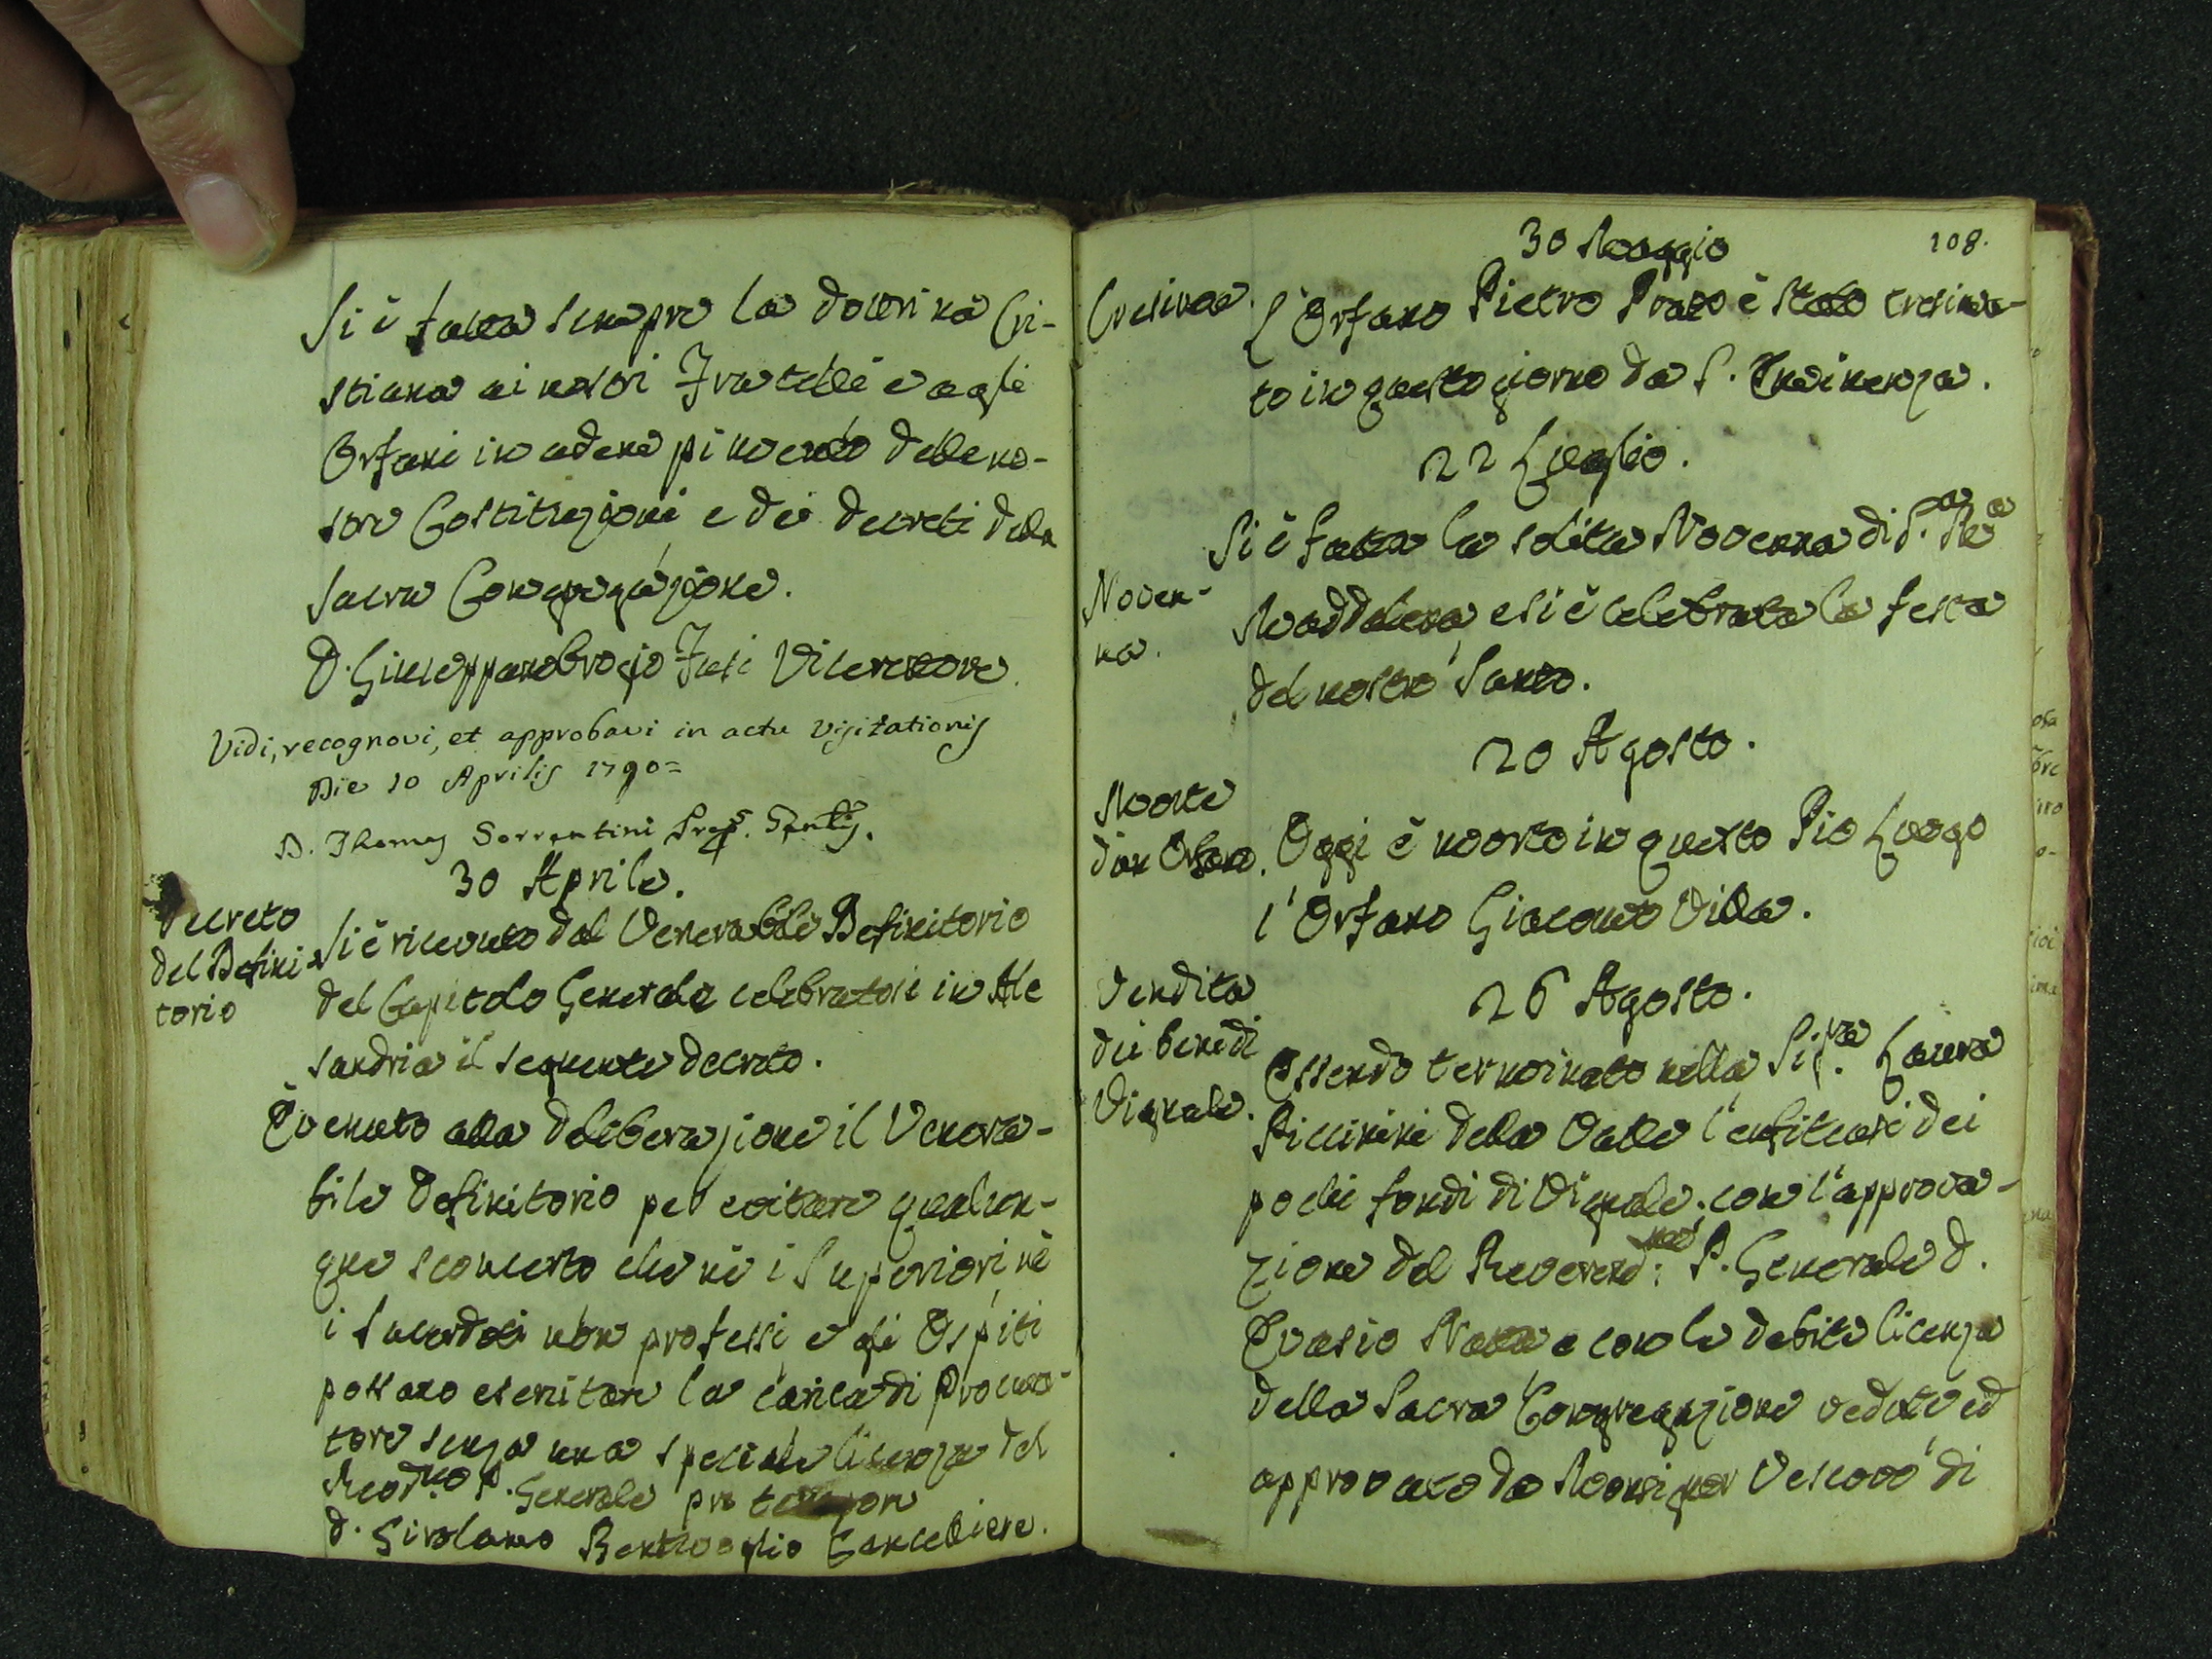 Si è fatta sempre la dottrina Cri-
stiana ai nostri Fratelli e agli
Orfani in adempimento delle no-
stre Costituzioni e dei decreti della
Sacra Congregazione.
D. Giuseppambrogio Fusi Vicerettore.
Vidi, recognovi, et approbavi in actu Visitationis
Die 10 Aprilis 1790=
D. Thomas Sorrentini
30 Aprile.
Decreto
del Defini-
torio
Si è ricevuto dal Venerabile Definitorio
del Capitolo Generale celebratosi in Ale
sandria il seguente decreto.
È venuto alla deliberazione il Venera-
bile Definitorio per evitare qualun-
que sconcerto che nè i Superiori, nè
i Sacerdoti non professi e gli Ospiti
possano esercitare la carica di Procura-
tore senza una speciale licenza del
Revd.mo P. Generale pro tempore
D. Girolamo Bentivoglio Cancelliere.
108.
30 Maggio
Cresima.
L'Orfano Pietro è stato cresima-
to in questo giorno da S. Eminenza.
22 Luglio.
Noven-
na.
Si è fatta la solita Novenna di S.a M.a
Maddalena, e si è celebrata la festa
del nostro Santo.
20 Agosto.
Morte
d'un Orfano.
Oggi è morto in questo Pio Luogo
l'Orfano Giacomo Villa.
26 Agosto.
Vendita
dei beni di
Vignale.
Essendo terminato nella Sig.ra Laura
Piccinini della Valle l'enfiteusi dei
pochi fondi di Vignale; con l'approva-
zione del Reverend:mo P. Generale D.
Evasio Natta e con le debite licenze
della Sacra Congregazione vedute ed
approvate da Monsignor Vescovo di